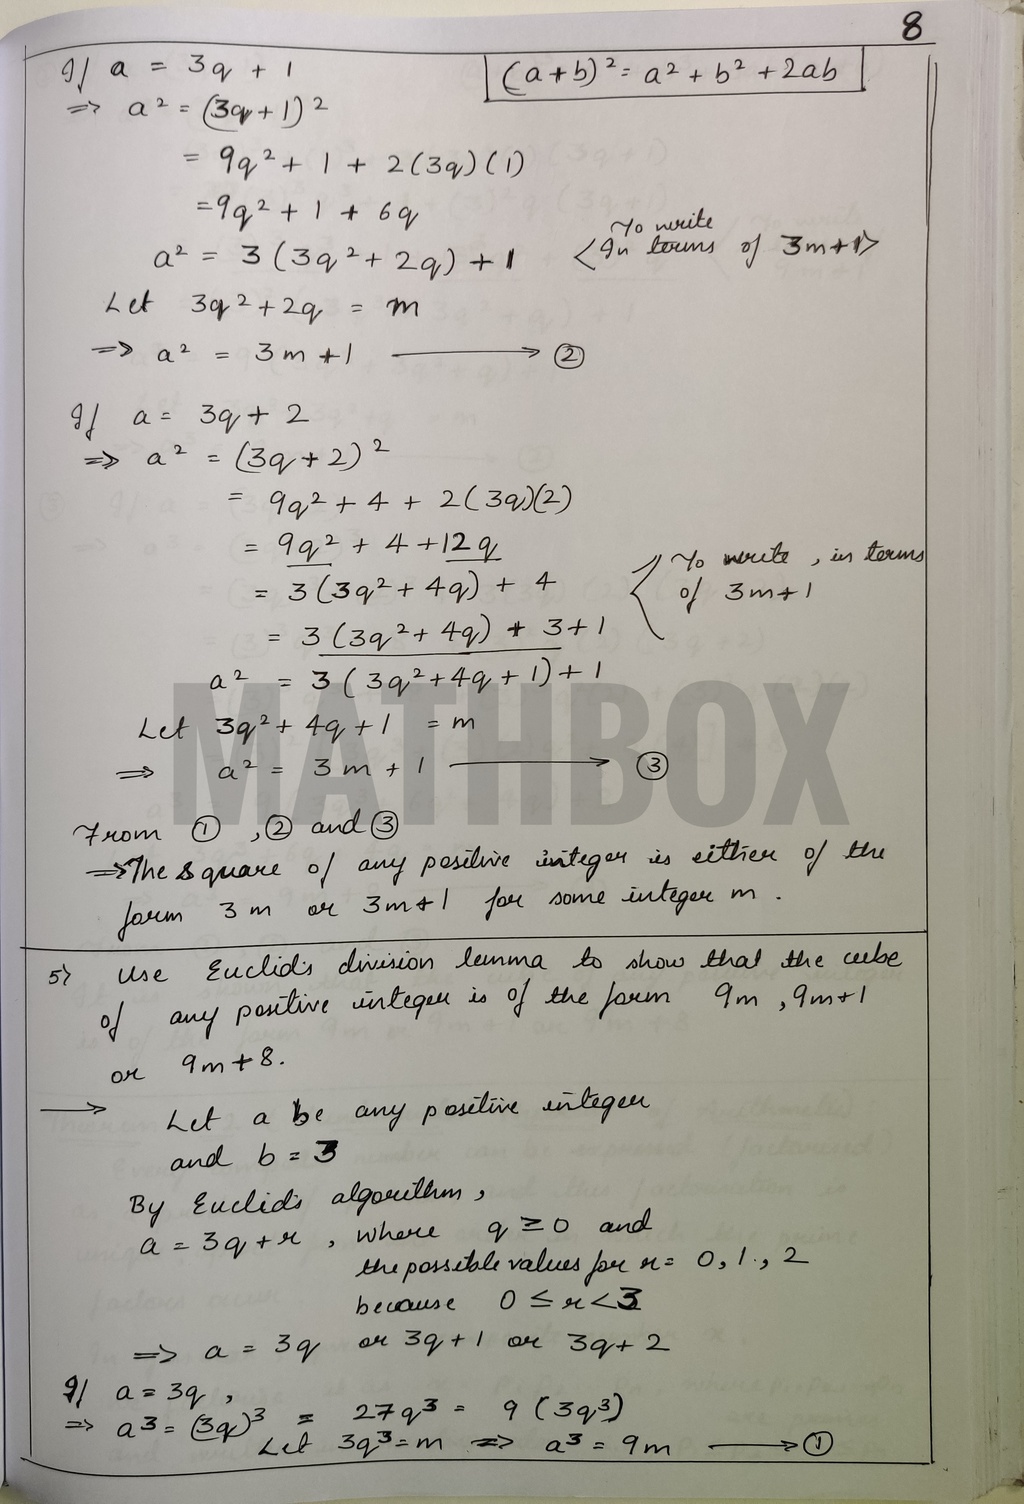 8
If a = 3q + 1
(a+b)² = a² + b² + 2ab
⇒ a² = (3q+1)²
= 9q² + 1 + 2(3q)(1)
= 9q² + 1 + 6q
a² = 3(3q² + 2q) + 1 <To write In terms of 3m+1>
Let 3q² + 2q = m
⇒ a² = 3m + 1 ⟶ ②
If a = 3q + 2
⇒ a² = (3q+2)²
= 9q² + 4 + 2(3q)(2)
= 9q² + 4 + 12q
= 3(3q² + 4q) + 4
< To write, in terms
of 3m+1
= 3(3q² + 4q) + 3 + 1
a² = 3(3q² + 4q + 1) + 1
Let 3q² + 4q + 1 = m
⇒ a² = 3m + 1 ⟶ ③
From ①, ② and ③
⇒ The square of any positive integer is either of the
form 3m or 3m+1 for some integer m.
5) Use Euclid's division lemma to show that the cube
of any positive integer is of the form 9m, 9m+1
or 9m+8.
⟶ Let a be any positive integer
and b = 3
By Euclid's algorithm,
a = 3q + r, where q ≥ 0 and
the possible values for r = 0, 1, 2
because 0 ≤ r < 3
⇒ a = 3q or 3q+1 or 3q+2
If a = 3q,
⇒ a³ = (3q)³ = 27q³ = 9(3q³)
Let 3q³ = m ⇒ a³ = 9m ⟶ ①
MATHBOX